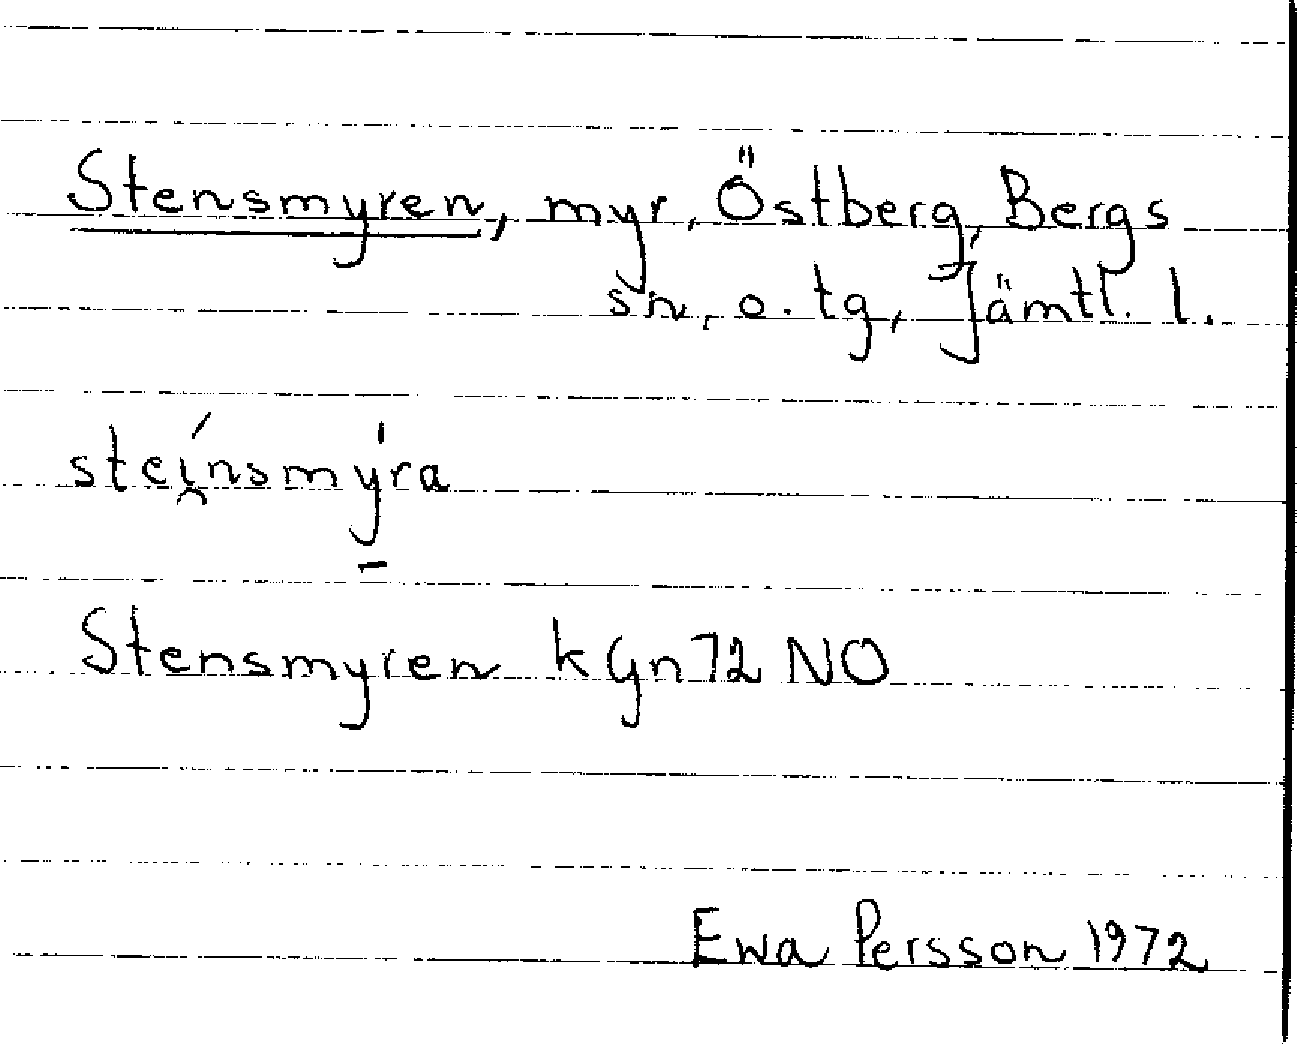 Stensmyren, myr, Östberg, Bergs
sn, o. tg, Jämtl. l.
steí̯nsmy̠̍ra
Stensmyren kGn72 NO
Ewa Persson 1972